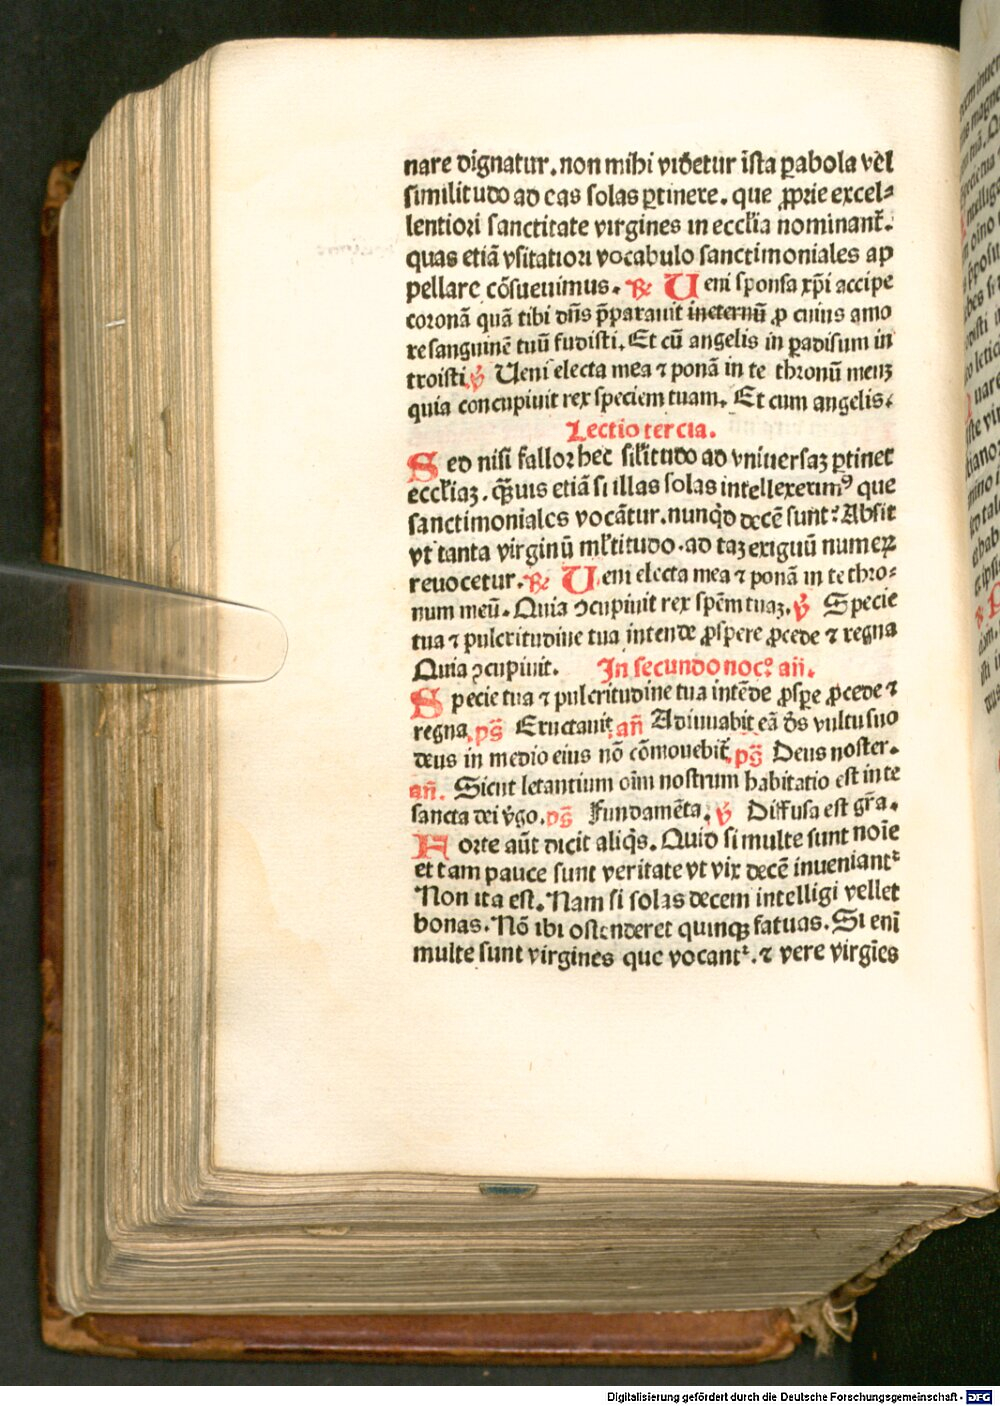 nare dignatur. non mihi videtur ista ꝑabola vel
similitudo ad eas solas ꝑtinere. que ꝓprie excel⸗
lentiori sanctitate virgines in eccl̄ia nominant᷑.
quas etiā vsitatiori vocabulo sanctimoniales ap
pellare cōsueuimus. ℟ Ueni sponsa xp̄i accipe
coronā quā tibi dn̄s p̄parauit ineternū ꝓ cuius amo
re sanguinē tuū fudisti. Et cū angelis in ꝑadisum in
troisti ℣ Ueni electa mea ⁊ ponā in te thronū meuꝫ
quia concupiuit rex speciem tuam. Et cum angelis.
Lectio tercia.
Sed nisi fallor hec sil̄itudo ad vniuersaꝫ ꝑtinet
eccl̄iaꝫ. q̄ꝫuis etiā si illas solas intellexerimꝰ que
sanctimoniales vocātur. nunqͥd decē sunt? Absit
vt tanta virginū ml̄titudo. ad taꝫ exiguū numeꝝ
reuocetur. ℟ Ueni electa mea ⁊ ponā in te thro⸗
num meū. Quia ↄcupiuit rex spēm tuaꝫ. ℣ Specie
tua ⁊ pulcritudine tua intende ꝓspere ꝓcede ⁊ regna
Quia ↄcupiuit. In secundo noc? an̄.
Specie tua ⁊ pulcritudine tua intēde ꝓspe ꝓcede ⁊
regna. ps̄ Eructauit an̄ Adiuuabit eā ds̄ vultu suo
deus in medio eius nō cōmouebit᷑. ps̄ Deus noster.
an̄. Sicut letantium oīm nostrum habitatio est in te
sancta dei v̄go. ps̄ Fundamēta. ℣ Diffusa est gr̄a.
Forte aūt dicit aliqͥs. Quid si multe sunt noīe
et tam pauce sunt veritate vt vix decē inueniant᷑
Non ita est. Nam si solas decem intelligi vellet
bonas. Nō ibi ostenderet quinqꝫ fatuas. Si eni
multe sunt virgines que vocant᷑. ⁊ vere virgīes
Digitalisierung gefördert durch die Deutsche Forschungsgemeinschaft - DFG